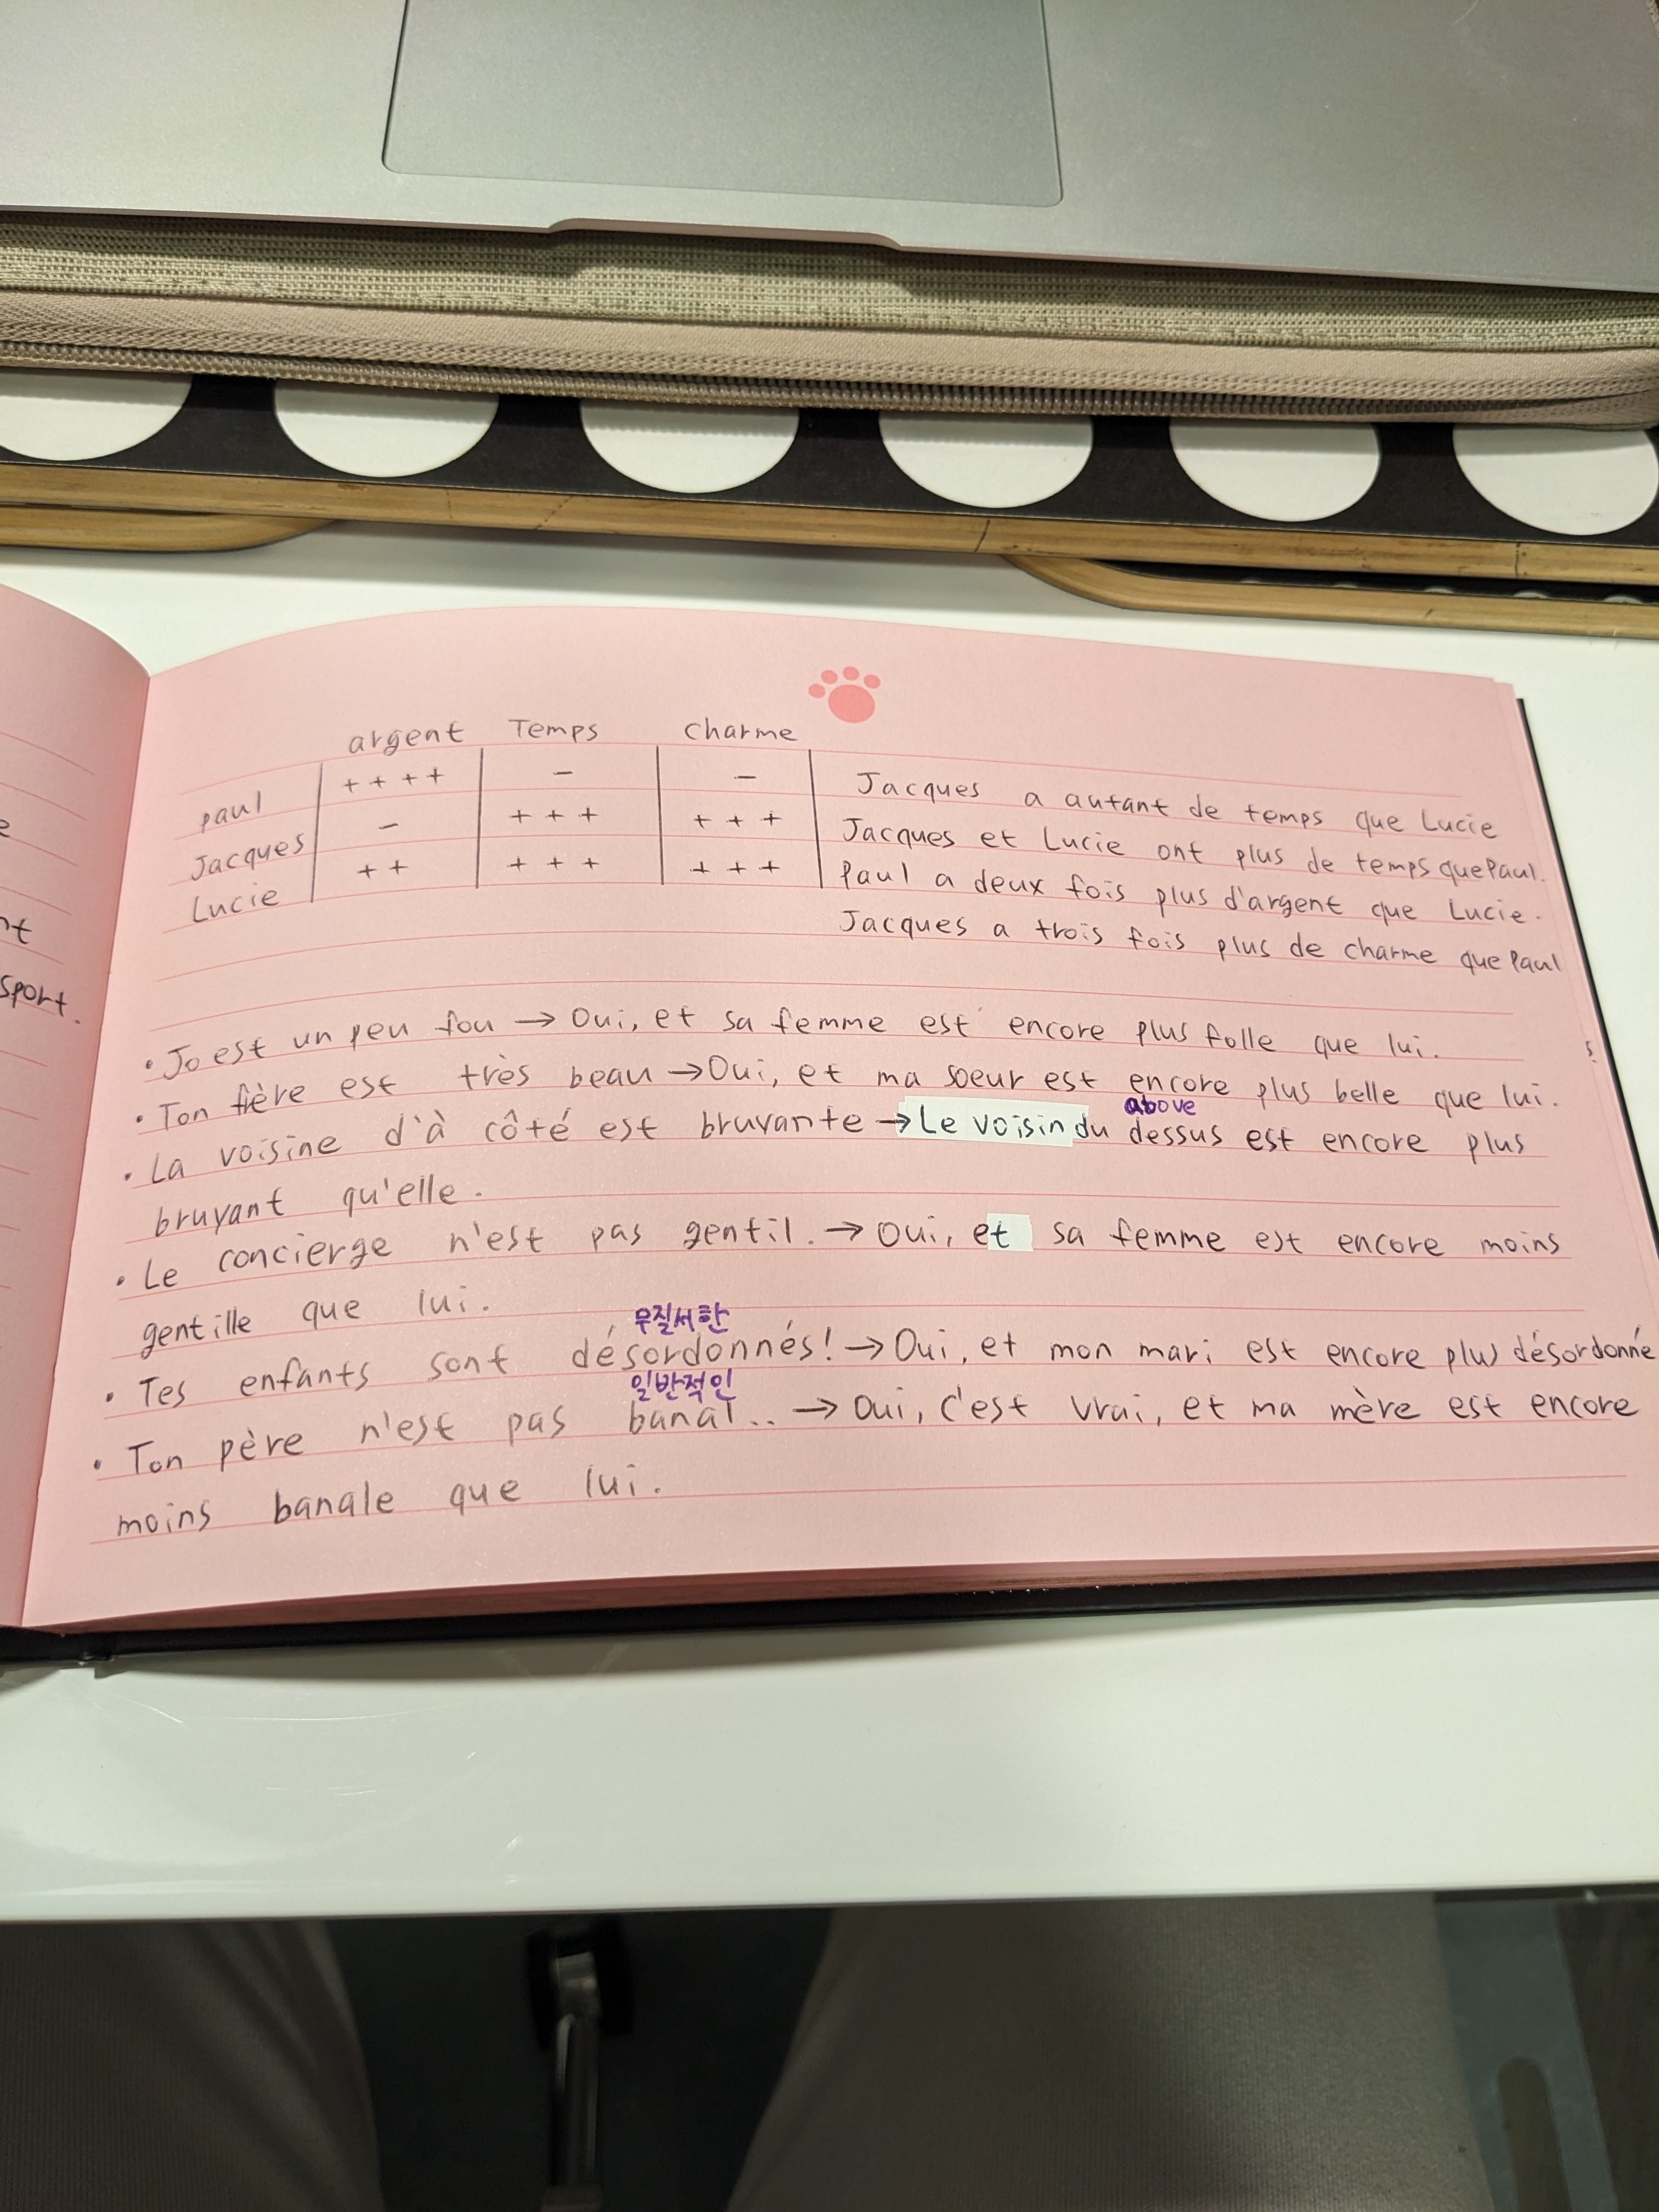 e
nt
sport.
argent Temps charme
paul ++++ − − Jacques a autant de temps que Lucie
Jacques − +++ +++ Jacques et Lucie ont plus de temps que Paul.
Lucie ++ +++ +++ Paul a deux fois plus d'argent que Lucie.
Jacques a trois fois plus de charme que Paul
• Jo est un peu fou → Oui, et sa femme est encore plus folle que lui.
• Ton frère est très beau → Oui, et ma soeur est encore plus belle que lui.
above
• La voisine d'à côté est bruyante → Le voisin du dessus est encore plus
bruyant qu'elle.
• Le concierge n'est pas gentil. → Oui, et sa femme est encore moins
gentille que lui.
무질서한
• Tes enfants sont désordonnés! → Oui, et mon mari est encore plus désordonné
일반적인
• Ton père n'est pas banal.. → Oui, c'est vrai, et ma mère est encore
moins banale que lui.